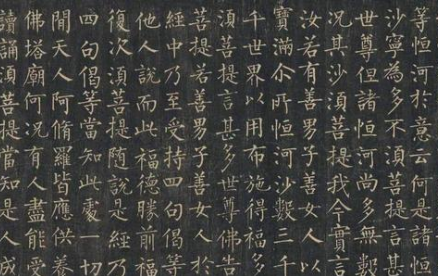 等恒河於意云何是諸恒
沙寧為多不須菩提言甚
世尊但諸恒河尚多無數
況其沙須菩提我今實言
汝若有善男子善女人以
寶滿尒所恒河沙數三千
千世界以用布施得福多
須菩提言甚多世尊佛告
菩提若善男子善女人於
經中乃至受持四句偈等
他人說而此福德勝前福
復次須菩提隨說是經乃
四句偈等當知此處一切
間天人阿脩羅皆應供養
佛塔廟何況有人盡能受
讀誦須菩提當知是人成